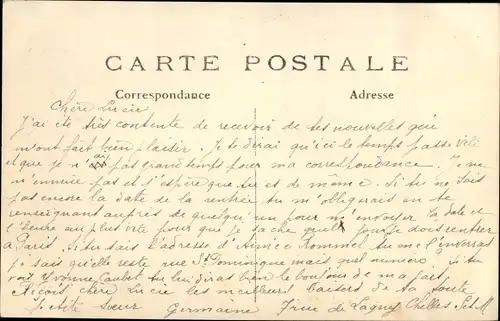 CARTE POSTALE
Correspondance
Adresse
Chère Lucie
J'ai été très contente de recevoir de tes nouvelles qui
m'ont fait bien plaisir. Je te dirai qu'ici le temps passe vite
et que je n'ai pas grand temps pour ma correspondance. Je ne
m'ennuie pas et j'espère que tu et de même. Si tu ne sais
pas encore la date de la rentrée tu m'obligerais en te
renseignant auprès de quelqu'un pour m'envoyer la date et
l'heure au plus vite pour que je sache quel jour je dois rentrer
à Paris. Si tu sais l'adresse d' Rommel tu me l'inverras
je sais qu'elle reste rue St Dominique mais quel numéro? Si tu
voit Yvonne tu lui diras bien le bonjour de ma part
Reçois chère Lucie les meilleurs baisers de ta toute
petite sœur Germaine 7 rue de Lagny Chelles S.et.M.